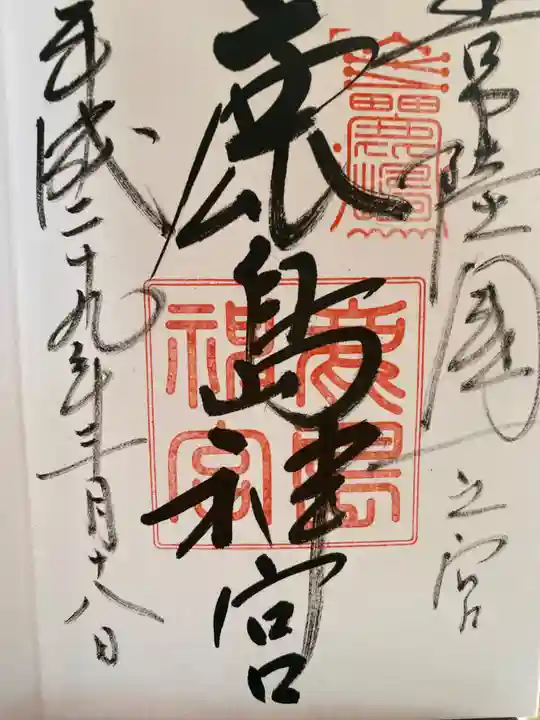 常陸國
之宮
鹿島神宮
鹿島
神宮
平成二十九年三月十八日